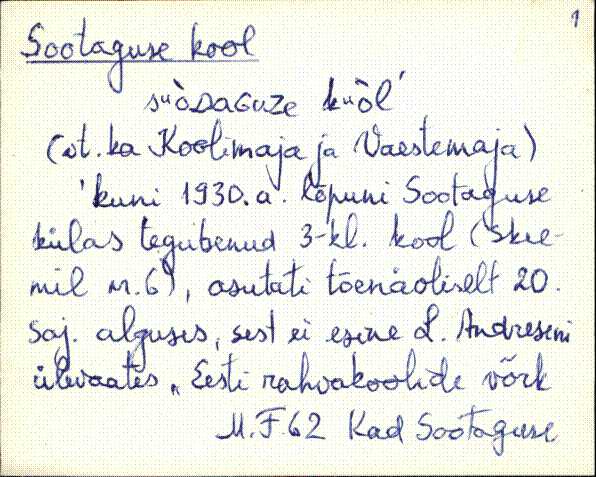 1
Sootaguse kool
sùòDAGUZE kùòl'
(vt. ka Koolimaja ja Vaestemaja)
'kuni 1930. a. lõpuni Sootaguse
külas tegutsenud 3-kl. kool (skee-
mil nr. 6), asutati tõenäoliselt 20.
saj. alguses, sest ei esine L. Andreseni
ülevaates „Eesti rahvakoolide võrk
M.F.62 Kad Sootaguse